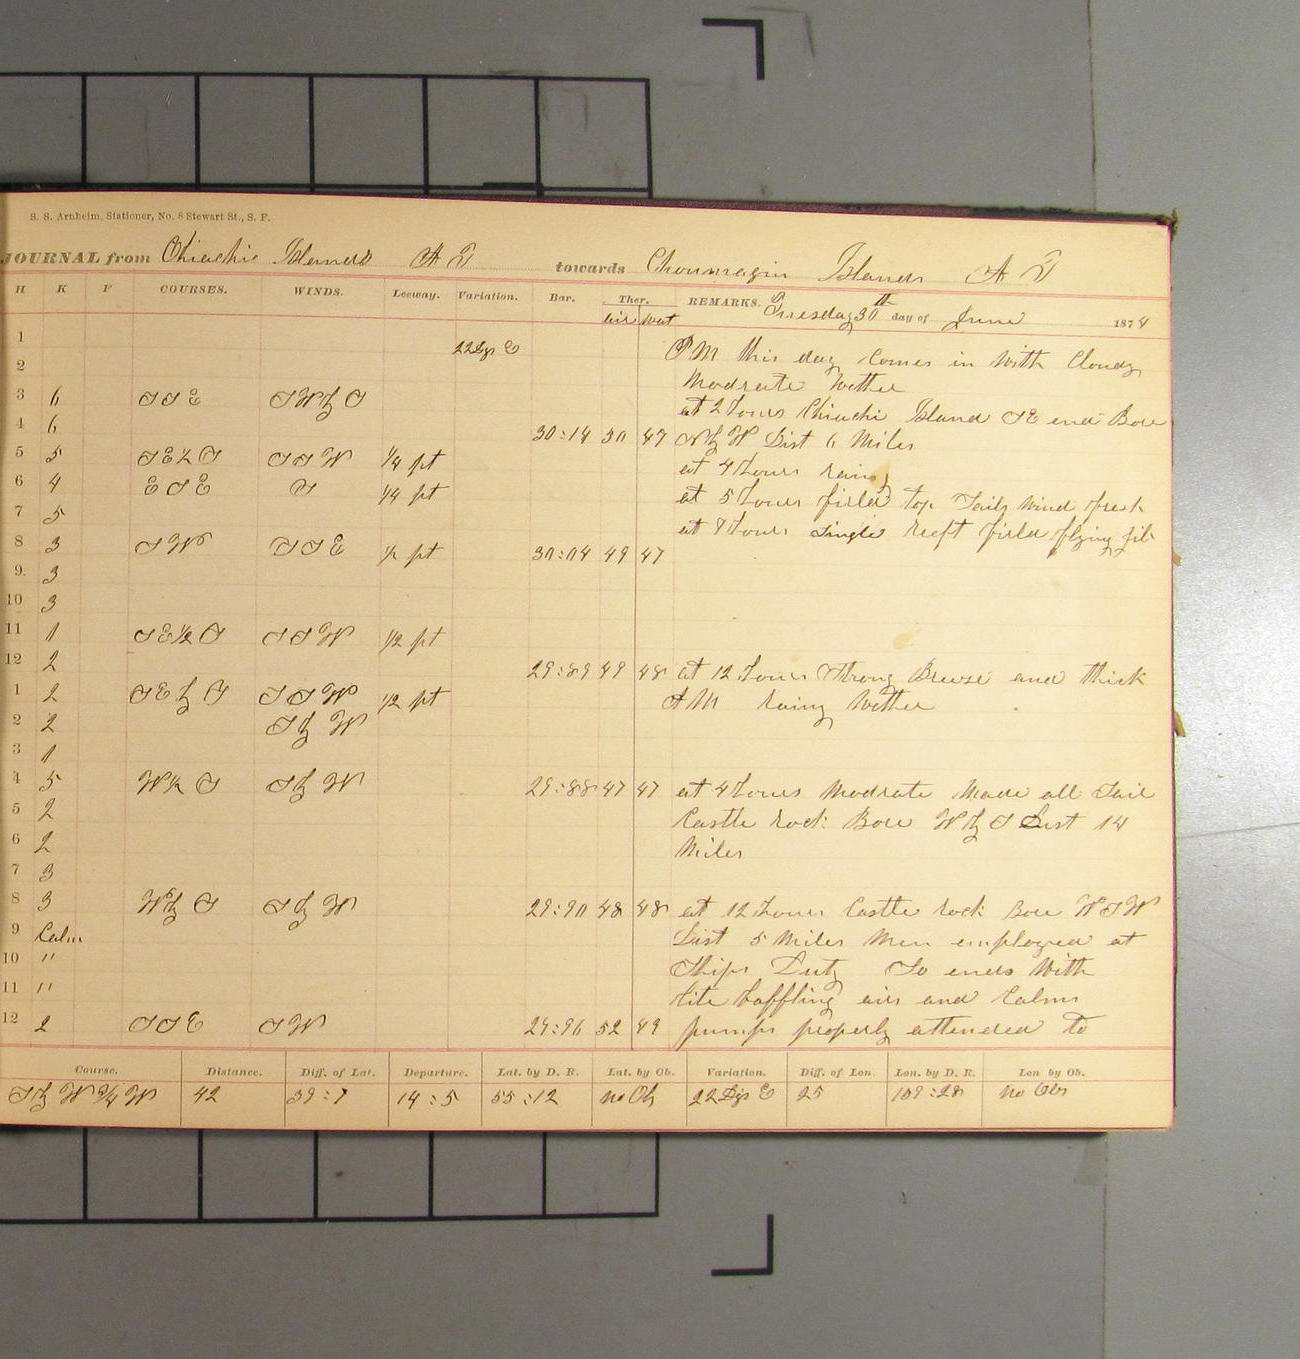 S. S. Arnheim, Stationer, No. 8 Stewart St., S. F.
JOURNAL from Chiachi Islands A T towards Choumagin Islands A T
H K F COURSES. WINDS. Leeway. Variation. Bar. Ther. REMARKS. Tuesday 30th day of June 1874
air wat
1
22Dgs E PM this day Comes in With Cloudy
2 Modrate Wether
3 6 S S E S W by S at 2 hours Chiachi Island S E end Bore
4 6 30:14 50 47 N by W Dist 6 Miles
5 5 S E 1/2 S S S W 1/4 pt at 4 hours rainy
6 4 E S E S 1/4 pt at 5 hours firld top Sails Wind fresh
7 5 at 8 hours Single reeft firld flying jib
8 3 S W S S E 1/2 pt 30:04 49 47
9 3
10 3
11 1 S E 1/2 S S S W 1/2 pt
12 2 29:89 49 48 at 12 hours Strong Breese and thick
1 2 S E by S S S W 1/2 pt AM rainy Wether
2 2 S by W
3 1
4 5 W 1/2 S S by W 29:88 47 47 at 4 hours Modrate Made all Sail
5 2 Castle rock Bore W by S Dist 14
6 2 Miles
7 3
8 3 W by S S by W 29:90 48 48 at 12 hours Castle rock Bore W S W
9 Calm Dist 5 Miles Men employed at
10 " Ships Duty So ends With
11 " lite baffling airs and Calms
12 2 S S E S W 29:96 52 49 pumps properly attended to
Course. Distance. Diff. of Lat. Departure. Lat. by D. R. Lat. by Ob. Variation. Diff. of Lon. Lon. by D. R. Lon by Ob.
S by W 3/4 W 42 39:7 14:5 55:12 no Ob 22Dgs E 25 159:28 no Obs